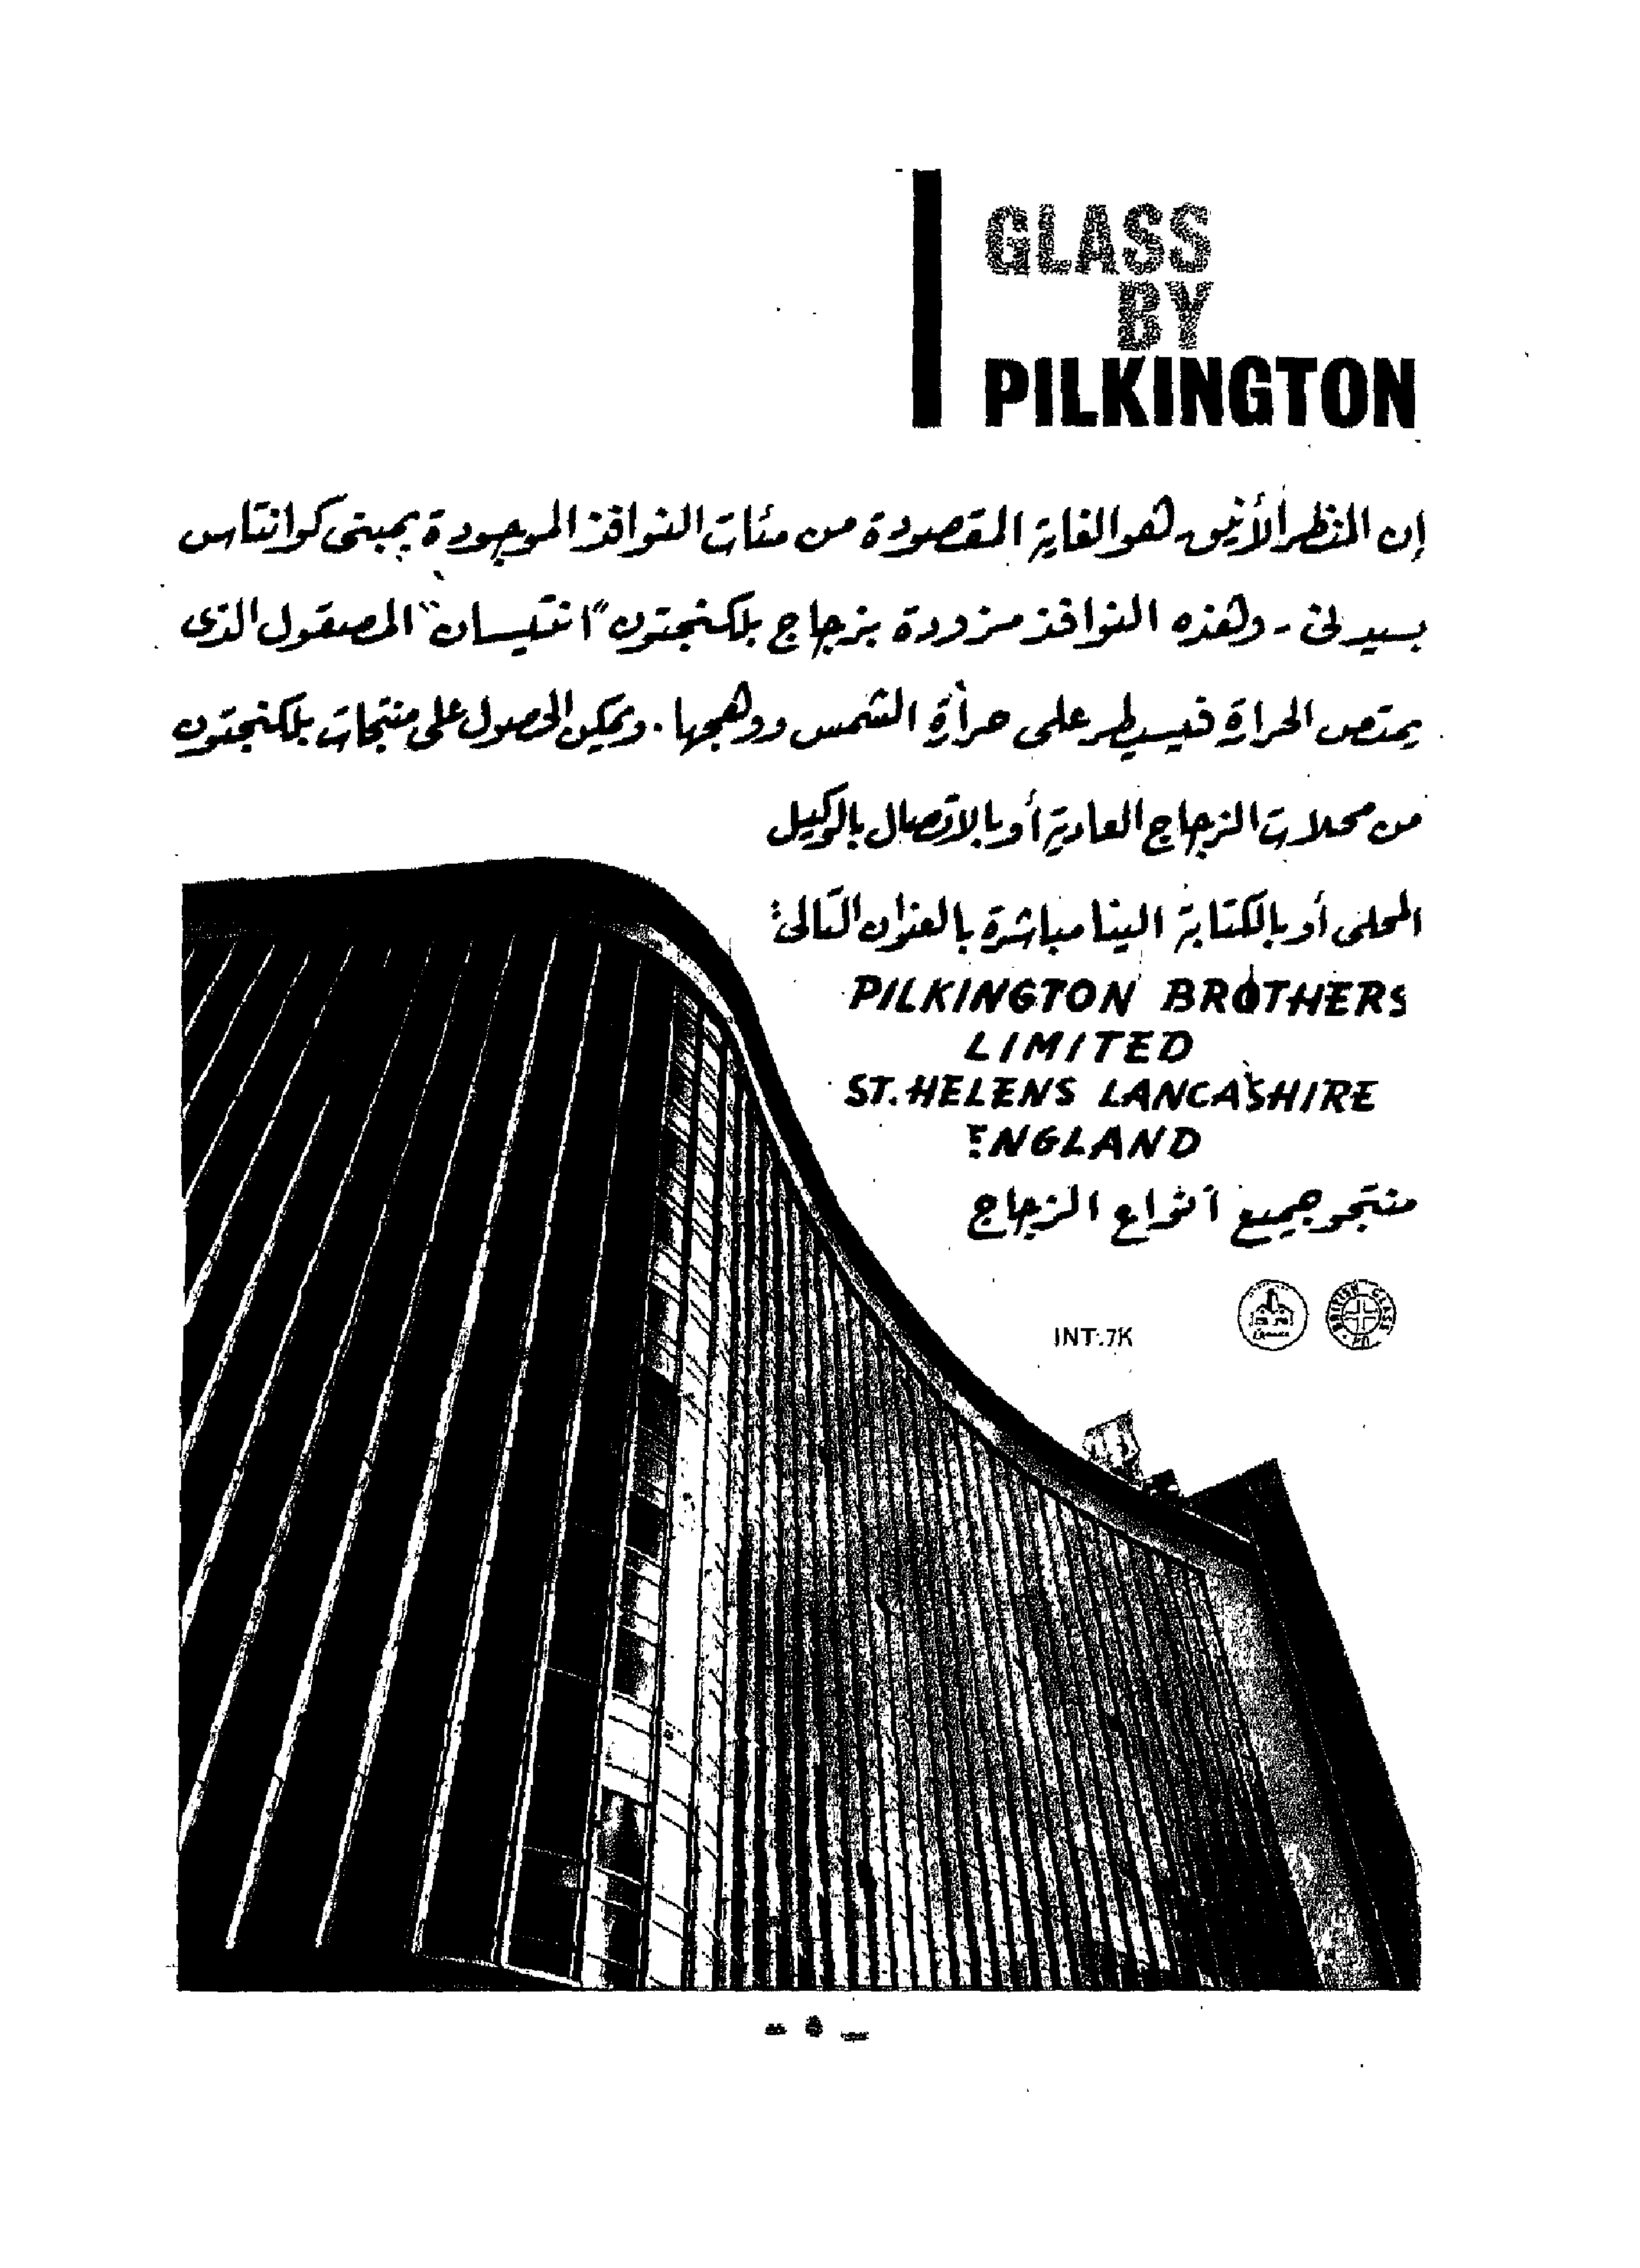 GLASS
BY
PILKINGTON
إن المنظر الأنيق هو الغاية المقصودة من مئات النوافذ الموجودة بمبنى كوانتاس
بسيدنى - وهذه النوافذ مزودة بزجاج بلكنجتون "انتيسان" المصقول الذى
يمتص الحرارة فيسيطر على حرارة الشمس ووهجها . ويمكن الحصول على منتجات بلكنجتون
من محلات الزجاج العادية أو بالاتصال بالوكيل
المحلى أو بالكتابة الينا مباشرة بالعنوان التالى :
PILKINGTON BROTHERS
LIMITED
ST. HELENS LANCASHIRE
ENGLAND
منتجو جميع أنواع الزجاج
INT.7K
BRITISH GLASS
- ٥ -